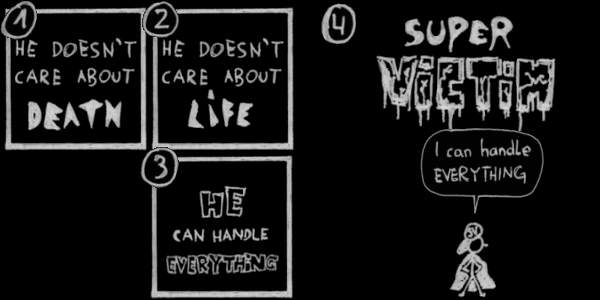 1
HE DOESN'T
CARE ABOUT
DEATH
2
HE DOESN'T
CARE ABOUT
LiFE
3
HE
CAN HANDLE
EVERYTHiNG
4
SUPER
ViCTiM
I can handle
EVERYTHING
SV